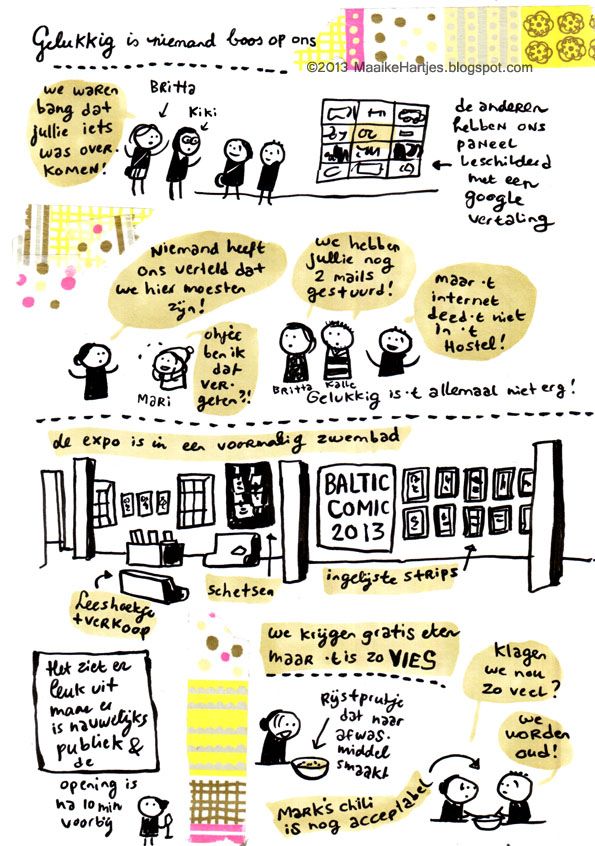 Gelukkig is niemand boos op ons
©2013 MaaikeHartjes.blogspot.com
we waren
bang dat
jullie iets
was over.
komen!
Britta
Kiki
de anderen
hebben ons
paneel
beschilderd
met een
google
vertaling
Niemand heeft
ons verteld dat
we hier moesten
zijn!
ohjée
ben ik
dat
ver.
geten?!
Mari
we hebben
jullie nog
2 mails
gestuurd!
maar 't
internet
deed 't niet
in 't
Hostel!
Britta
Kalle
Gelukkig is 't allemaal niet erg!
de expo is in een voormalig zwembad
BALTIC
COMIC
2013
Leeshoekje
+ verkoop
schetsen
ingelijste strips
Het ziet er
leuk uit
maar er
is nauwelijks
publiek &
de
opening is
na 10 min
voorbij
we krijgen gratis eten
maar 't is zo VIES
Rijstprutje
dat naar
afwas.
middel
smaakt
Klagen
we nou
zo veel?
we
worden
oud!
Mark's chili
is nog acceptabel